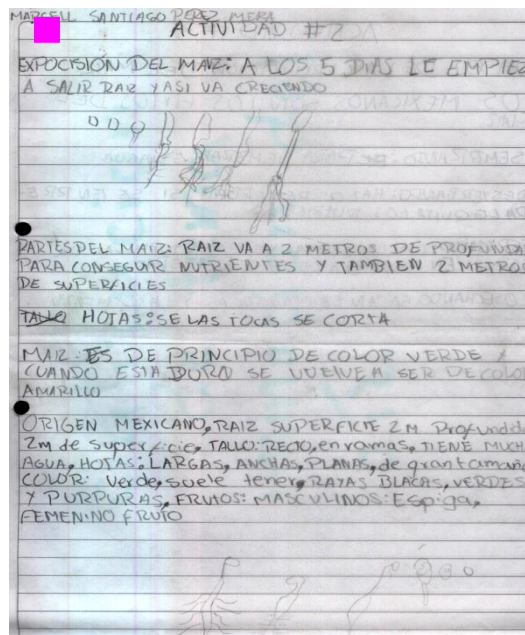 MARCELL SANTIAGO PEREZ MERA
ACTIVIDAD #2
EXPOCISIÓN DEL MAIZ: A LOS 5 DIAS LE EMPIEZ
A SALIR RAIZ Y ASI VA CRECIENDO
PARTES DEL MAIZ: RAIZ VA A 2 METROS DE PROFUNDA
PARA CONSEGUIR NUTRIENTES Y TAMBIEN 2 METROS
DE SUPERFICIES
TALLO HOJAS: SE LAS TOCAS SE CORTA
MAIZ: ES DE PRINCIPIO DE COLOR VERDE Y
CUANDO ESTA DURO SE VUELVE A SER DE COLO
AMARILLO
ORIGEN MEXICANO, RAIZ SUPERFICIE 2M Profundida
2m de superficie, TALLO: RECIO, en ramas, TIENE MUCH
AGUA, HOJAS: LARGAS, ANCHAS, PLANAS, de gran tamaño
COLOR: Verde, suele tener, RAYAS BLACAS, VERDES
Y PURPURAS, FRUTOS: MASCULINOS: Espiga,
FEMENINO FRUTO